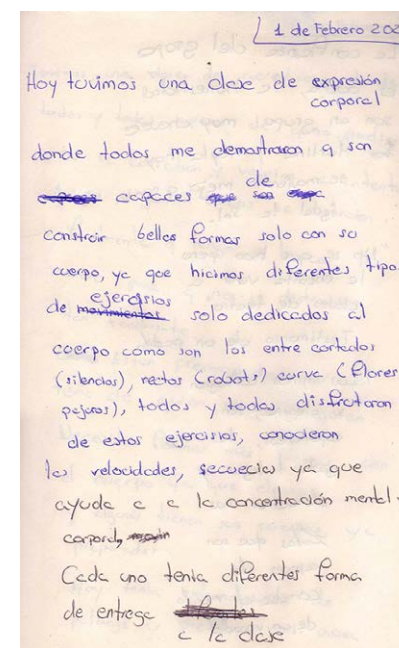 1 de Febrero 202
Hoy tuvimos una clase de expresión
corporal
donde todos me demostraron q son
capaces de
construir bellas formas solo con su
cuerpo, ya que hicimos diferentes tipo
de ejercisios solo dedicados al
cuerpo como son los entre cortados
(silencios), rectos (robots) curva (flores
pajaros), todos y todas disfrutaron
de estos ejercisios, conocieron
las velocidades, secuecias ya que
ayuda a a la concentración mental
corporal,
Cada uno tenia diferentes forma
de entrega
a la clase